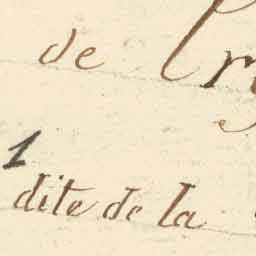 de
1
dite de la